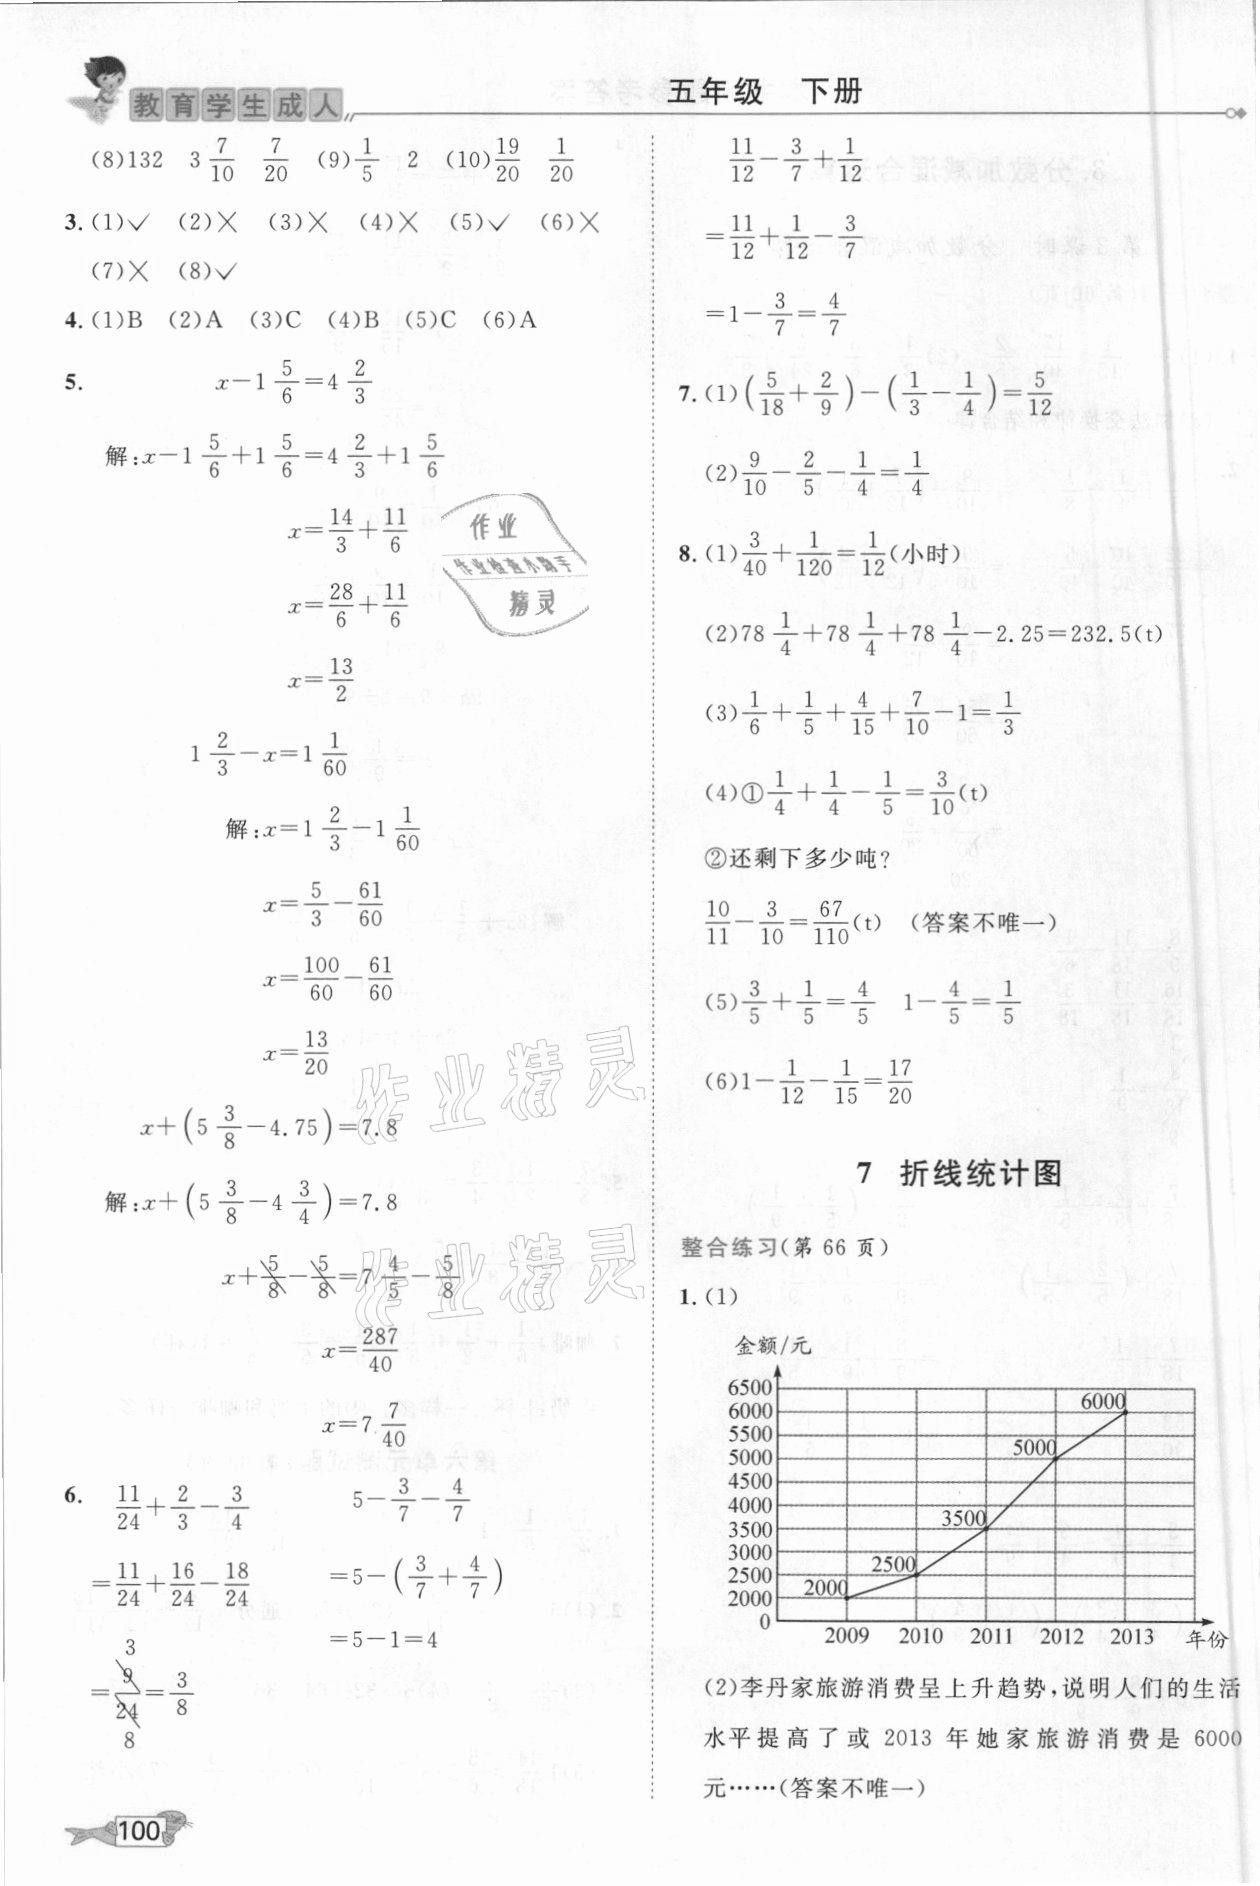 教育学生成人
五年级 下册
(8)132 3 7/10 7/20 (9)1/5 2 (10)19/20 1/20
3. (1)✓ (2)╳ (3)╳ (4)╳ (5)✓ (6)╳
(7)╳ (8)✓
4. (1)B (2)A (3)C (4)B (5)C (6)A
5. x-1 5/6=4 2/3
解:x-1 5/6+1 5/6=4 2/3+1 5/6
x=14/3+11/6
x=28/6+11/6
x=13/2
1 2/3-x=1 1/60
解:x=1 2/3-1 1/60
x=5/3-61/60
x=100/60-61/60
x=13/20
x+(5 3/8-4.75)=7.8
解:x+(5 3/8-4 3/4)=7.8
x+5/8-5/8=7 4/5-5/8
x=287/40
x=7 7/40
6. 11/24+2/3-3/4
=11/24+16/24-18/24
3
=9/24=3/8
8
5-3/7-4/7
=5-(3/7+4/7)
=5-1=4
100
11/12-3/7+1/12
=11/12+1/12-3/7
=1-3/7=4/7
7. (1)(5/18+2/9)-(1/3-1/4)=5/12
(2)9/10-2/5-1/4=1/4
8. (1)3/40+1/120=1/12(小时)
(2)78 1/4+78 1/4+78 1/4-2.25=232.5(t)
(3)1/6+1/5+4/15+7/10-1=1/3
(4)①1/4+1/4-1/5=3/10(t)
②还剩下多少吨?
10/11-3/10=67/110(t) (答案不唯一)
(5)3/5+1/5=4/5 1-4/5=1/5
(6)1-1/12-1/15=17/20
7 折线统计图
整合练习(第 66 页)
1. (1)
金额/元
6500
6000
5500
5000
4500
4000
3500
3000
2500
2000
0
2000
2500
3500
5000
6000
2009 2010 2011 2012 2013 年份
(2)李丹家旅游消费呈上升趋势,说明人们的生活
水平提高了或 2013 年她家旅游消费是 6000
元……(答案不唯一)
作业
作业检查小助手
精灵
作业精灵
作业精灵